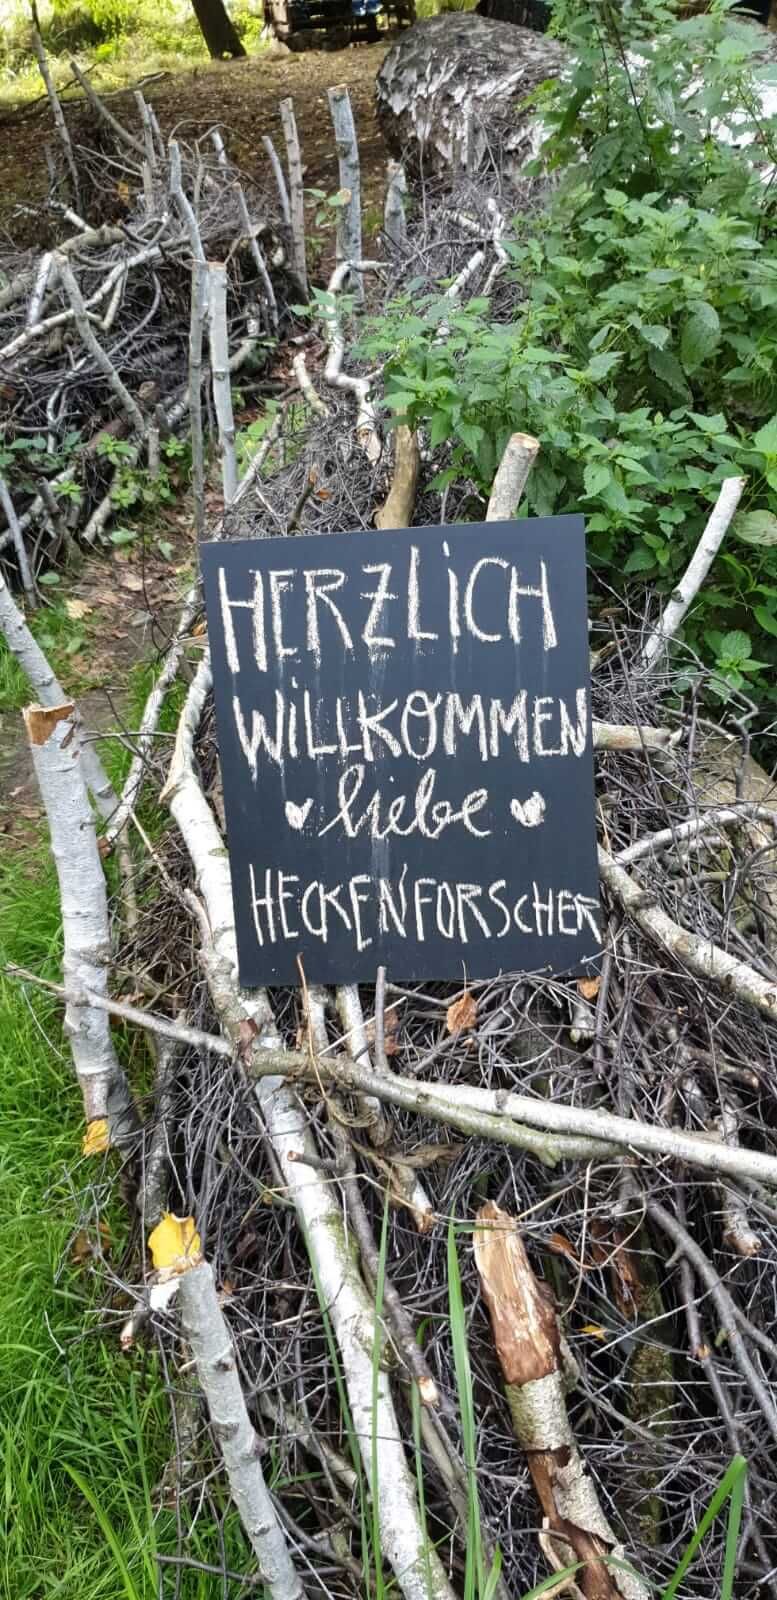 HERZLICH
WILLKOMMEN
♥ liebe ♥
HECKENFORSCHER